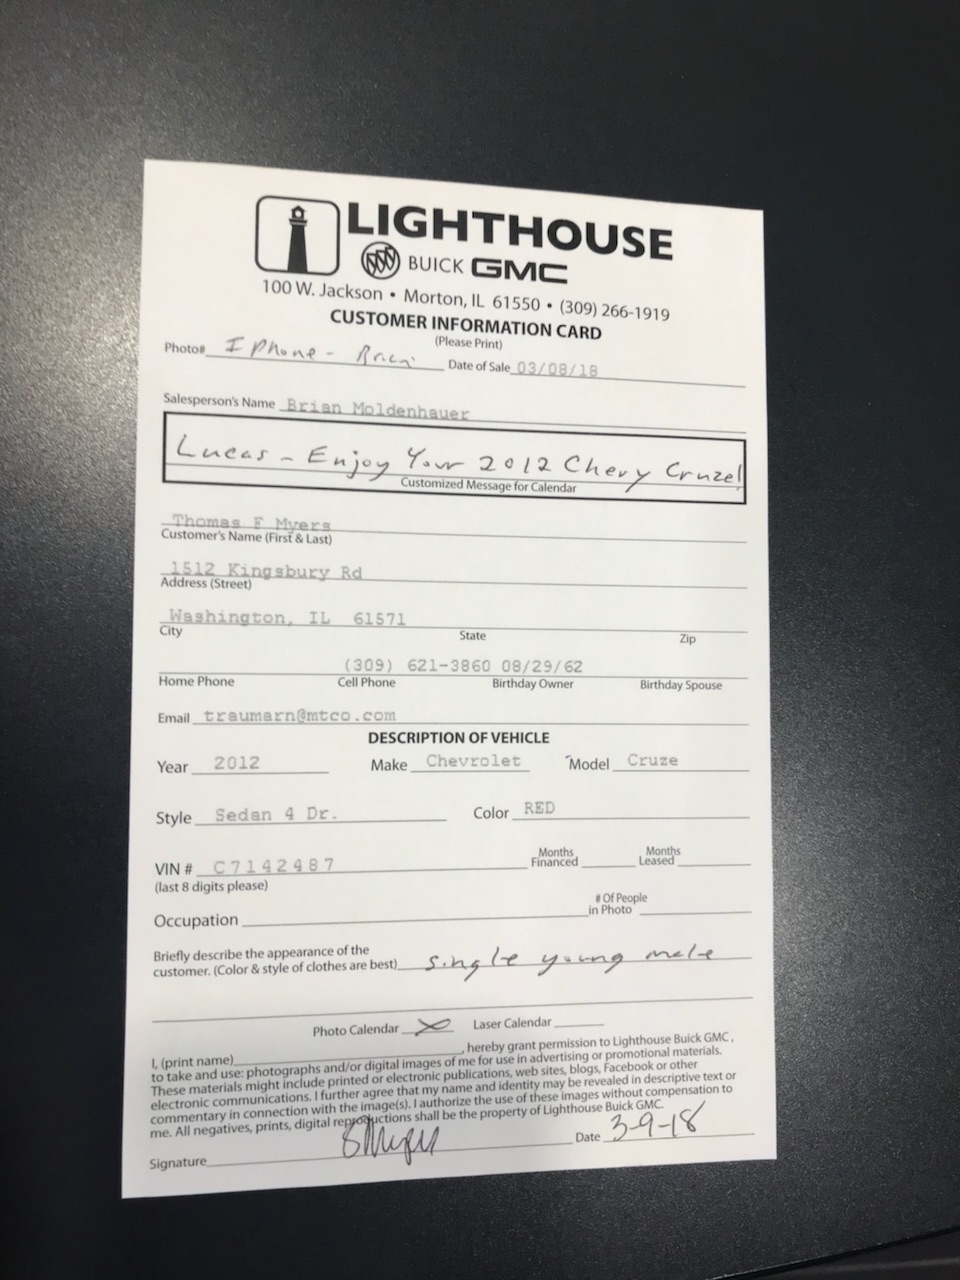 LIGHTHOUSE
BUICK GMC
100 W. Jackson • Morton, IL 61550 • (309) 266-1919
CUSTOMER INFORMATION CARD
(Please Print)
Photo# I Phone - Brian Date of Sale 03/08/18
Salesperson's Name Brian Moldenhauer
Lucas - Enjoy Your 2012 Chevy Cruze!
Customized Message for Calendar
Thomas F Myers
Customer's Name (First & Last)
1512 Kingsbury Rd
Address (Street)
Washington, IL 61571
City State Zip
(309) 621-3860 08/29/62
Home Phone Cell Phone Birthday Owner Birthday Spouse
Email traumarn@mtco.com
DESCRIPTION OF VEHICLE
Year 2012 Make Chevrolet Model Cruze
Style Sedan 4 Dr. Color RED
VIN # C7142487 Months Financed Months Leased
(last 8 digits please)
Occupation # Of People in Photo
Briefly describe the appearance of the
customer. (Color & style of clothes are best) single young male
Photo Calendar X Laser Calendar
I, (print name) , hereby grant permission to Lighthouse Buick GMC,
to take and use: photographs and/or digital images of me for use in advertising or promotional materials.
These materials might include printed or electronic publications, web sites, blogs, Facebook or other
electronic communications. I further agree that my name and identity may be revealed in descriptive text or
commentary in connection with the image(s). I authorize the use of these images without compensation to
me. All negatives, prints, digital reproductions shall be the property of Lighthouse Buick GMC.
Signature Date 3-9-18